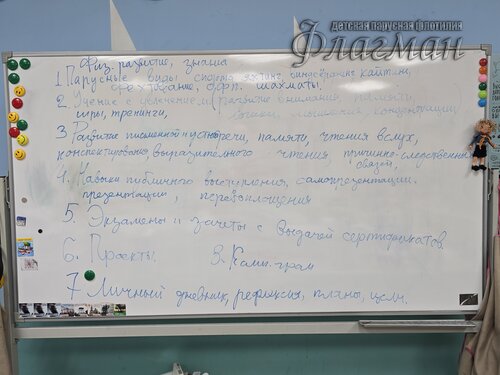 детская парусная флотилия
Флагман
Физ. развитие, знания
1. Парусные виды спорта яхтинг, виндсёрфинг кайтинг,
фехтование, шахматы.
2. Учение с увлечением (развитие внимания, памяти,
игры, тренинги, мышления концентрации
3. Развитие письменной и устной речи, памяти, чтения вслух,
конспектирование, выразительного чтения причинно-следственных
связей,
4. Навыки публичного выступления, самопрезентации.
презентации, перевоплощения
5. Экзамены и зачеты с выдачей сертификатов
6. Проекты. 8. Комп. грам
7 Личный дневник, рефлексия, планы, цели.